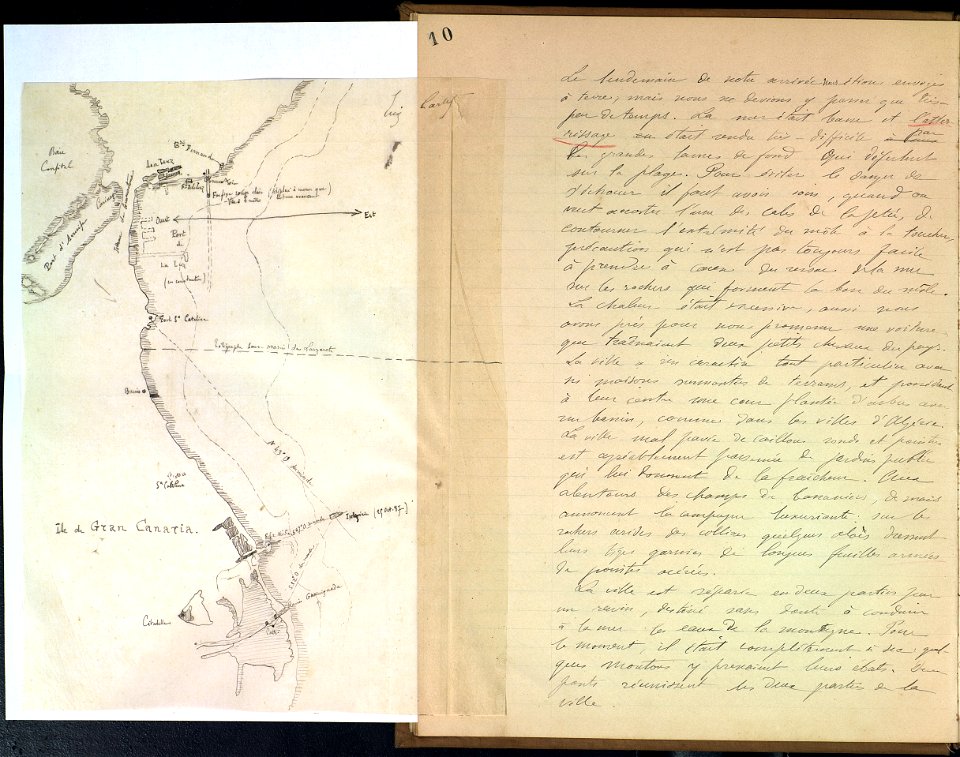 10
Le lendemain de notre arrivée nous étions envoyés
à terre, mais nous ne devions y passer que très
peu de temps. La mer était basse et l'atter
rissage en était rendu très-difficile par
les grandes lames de fond qui déferlent
sur la plage. Pour éviter le danger de
s'échouer il faut avoir soin, quand on
veut accoster l'une des cales de la jetée, de
contourner l'extrémité du môle à la toucher,
précaution qui n'est pas toujours facile
à prendre à cause du ressac de la mer
sur les rochers qui forment la base du môle.
La chaleur était excessive, aussi nous
avons pris pour nous promener une voiture
que traînaient deux petits chevaux du pays.
La ville a un caractère tout particulier avec
ses maisons surmontées de terrasses, et possédant
à leur centre une cour plantée d'arbres avec
un bassin, comme dans les villes d'Algérie.
La ville mal pavée de cailloux ronds et pointus
est agréablement parsemée de jardins publics
qui lui donnent de la fraîcheur. Aux
alentours des champs de bananiers, de maïs
annoncent la campagne luxuriante. sur les
rochers arides des collines quelques aloès dressent
leurs tiges garnies de longues feuilles armées
de pointes acérées.
La ville est séparée en deux parties par
un ravin, destiné sans doute à conduire
à la mer les eaux de la montagne. Pour
le moment, il était complètement à sec quel
ques moutons y prenaient leurs ébats. Deux
ponts réunissent les deux parties de la
ville.
Baie
Confital
Port d'
Las Palmas
Ouest
Est
Port
de
La Luz
(en construction)
Fort Sta Catalina
Télégraphe sous-marin
Bains
Sta Catalina
Ile de Gran Canaria.
(27 Oct. 97)
Citadelle